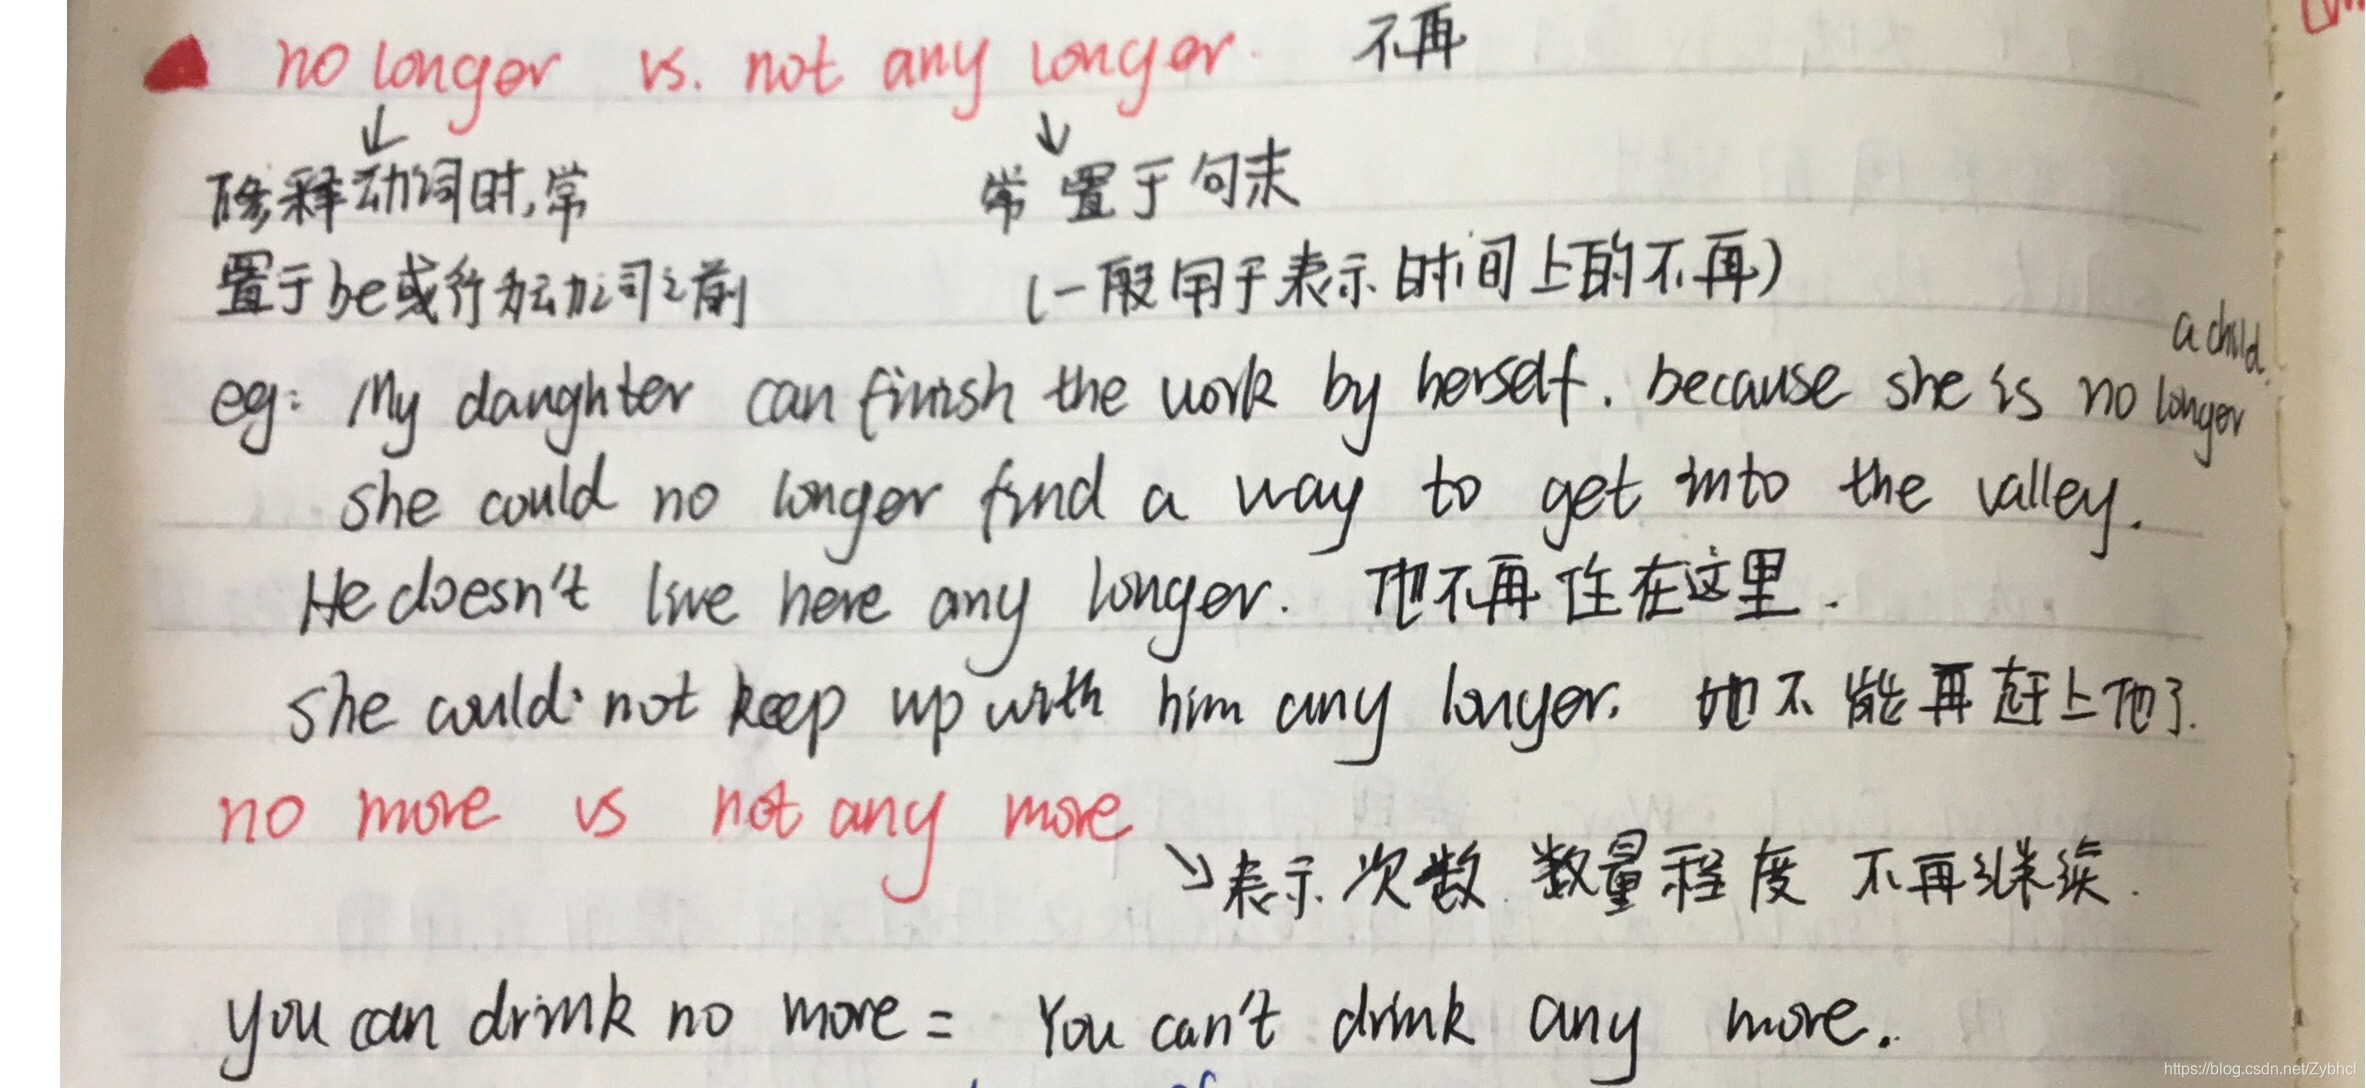 no longer vs. not any longer. 不再
修释动词时,常 常置于句末
置于be或行为动词之前 (一般用于表示时间上的不再)
a child.
eg: My daughter can finish the work by herself. because she is no longer
she could no longer find a way to get into the valley.
He doesn't live here any longer. 他不再住在这里.
she could not keep up with him any longer. 她不能再赶上他了.
no more vs not any more
表示次数 数量程度 不再继续.
you can drink no more = You can't drink any more.
https://blog.csdn.net/Zybhcl